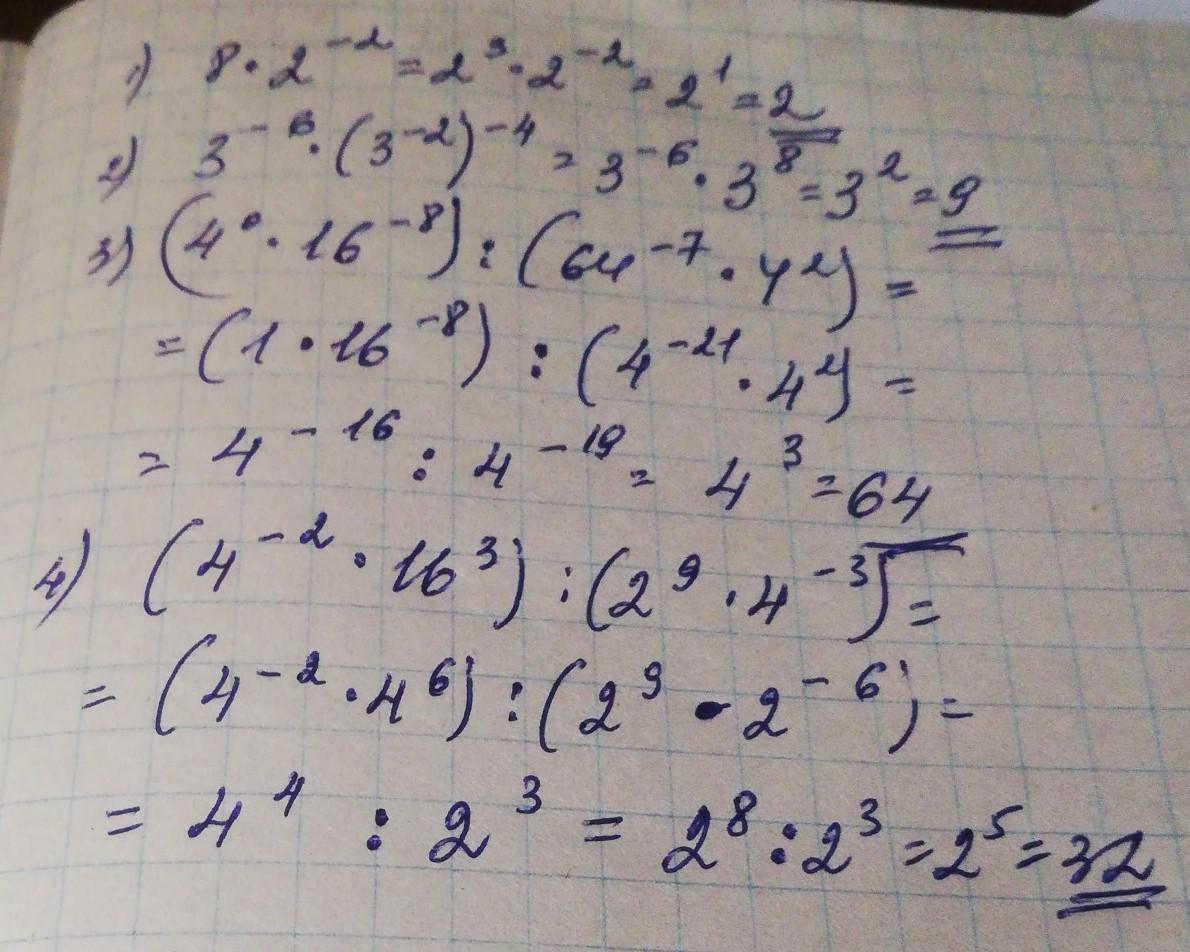 1) 8 · 2⁻² = 2³ · 2⁻² = 2¹ = 2
2) 3⁻⁶ · (3⁻²)⁻⁴ = 3⁻⁶ · 3⁸ = 3² = 9
3) (4⁰ · 16⁻⁸) : (64⁻⁷ · 4²) =
= (1 · 16⁻⁸) : (4⁻²¹ · 4²) =
= 4⁻¹⁶ : 4⁻¹⁹ = 4³ = 64
4) (4⁻² · 16³) : (2⁹ · 4⁻³) =
= (4⁻² · 4⁶) : (2⁹ · 2⁻⁶) =
= 4⁴ : 2³ = 2⁸ : 2³ = 2⁵ = 32